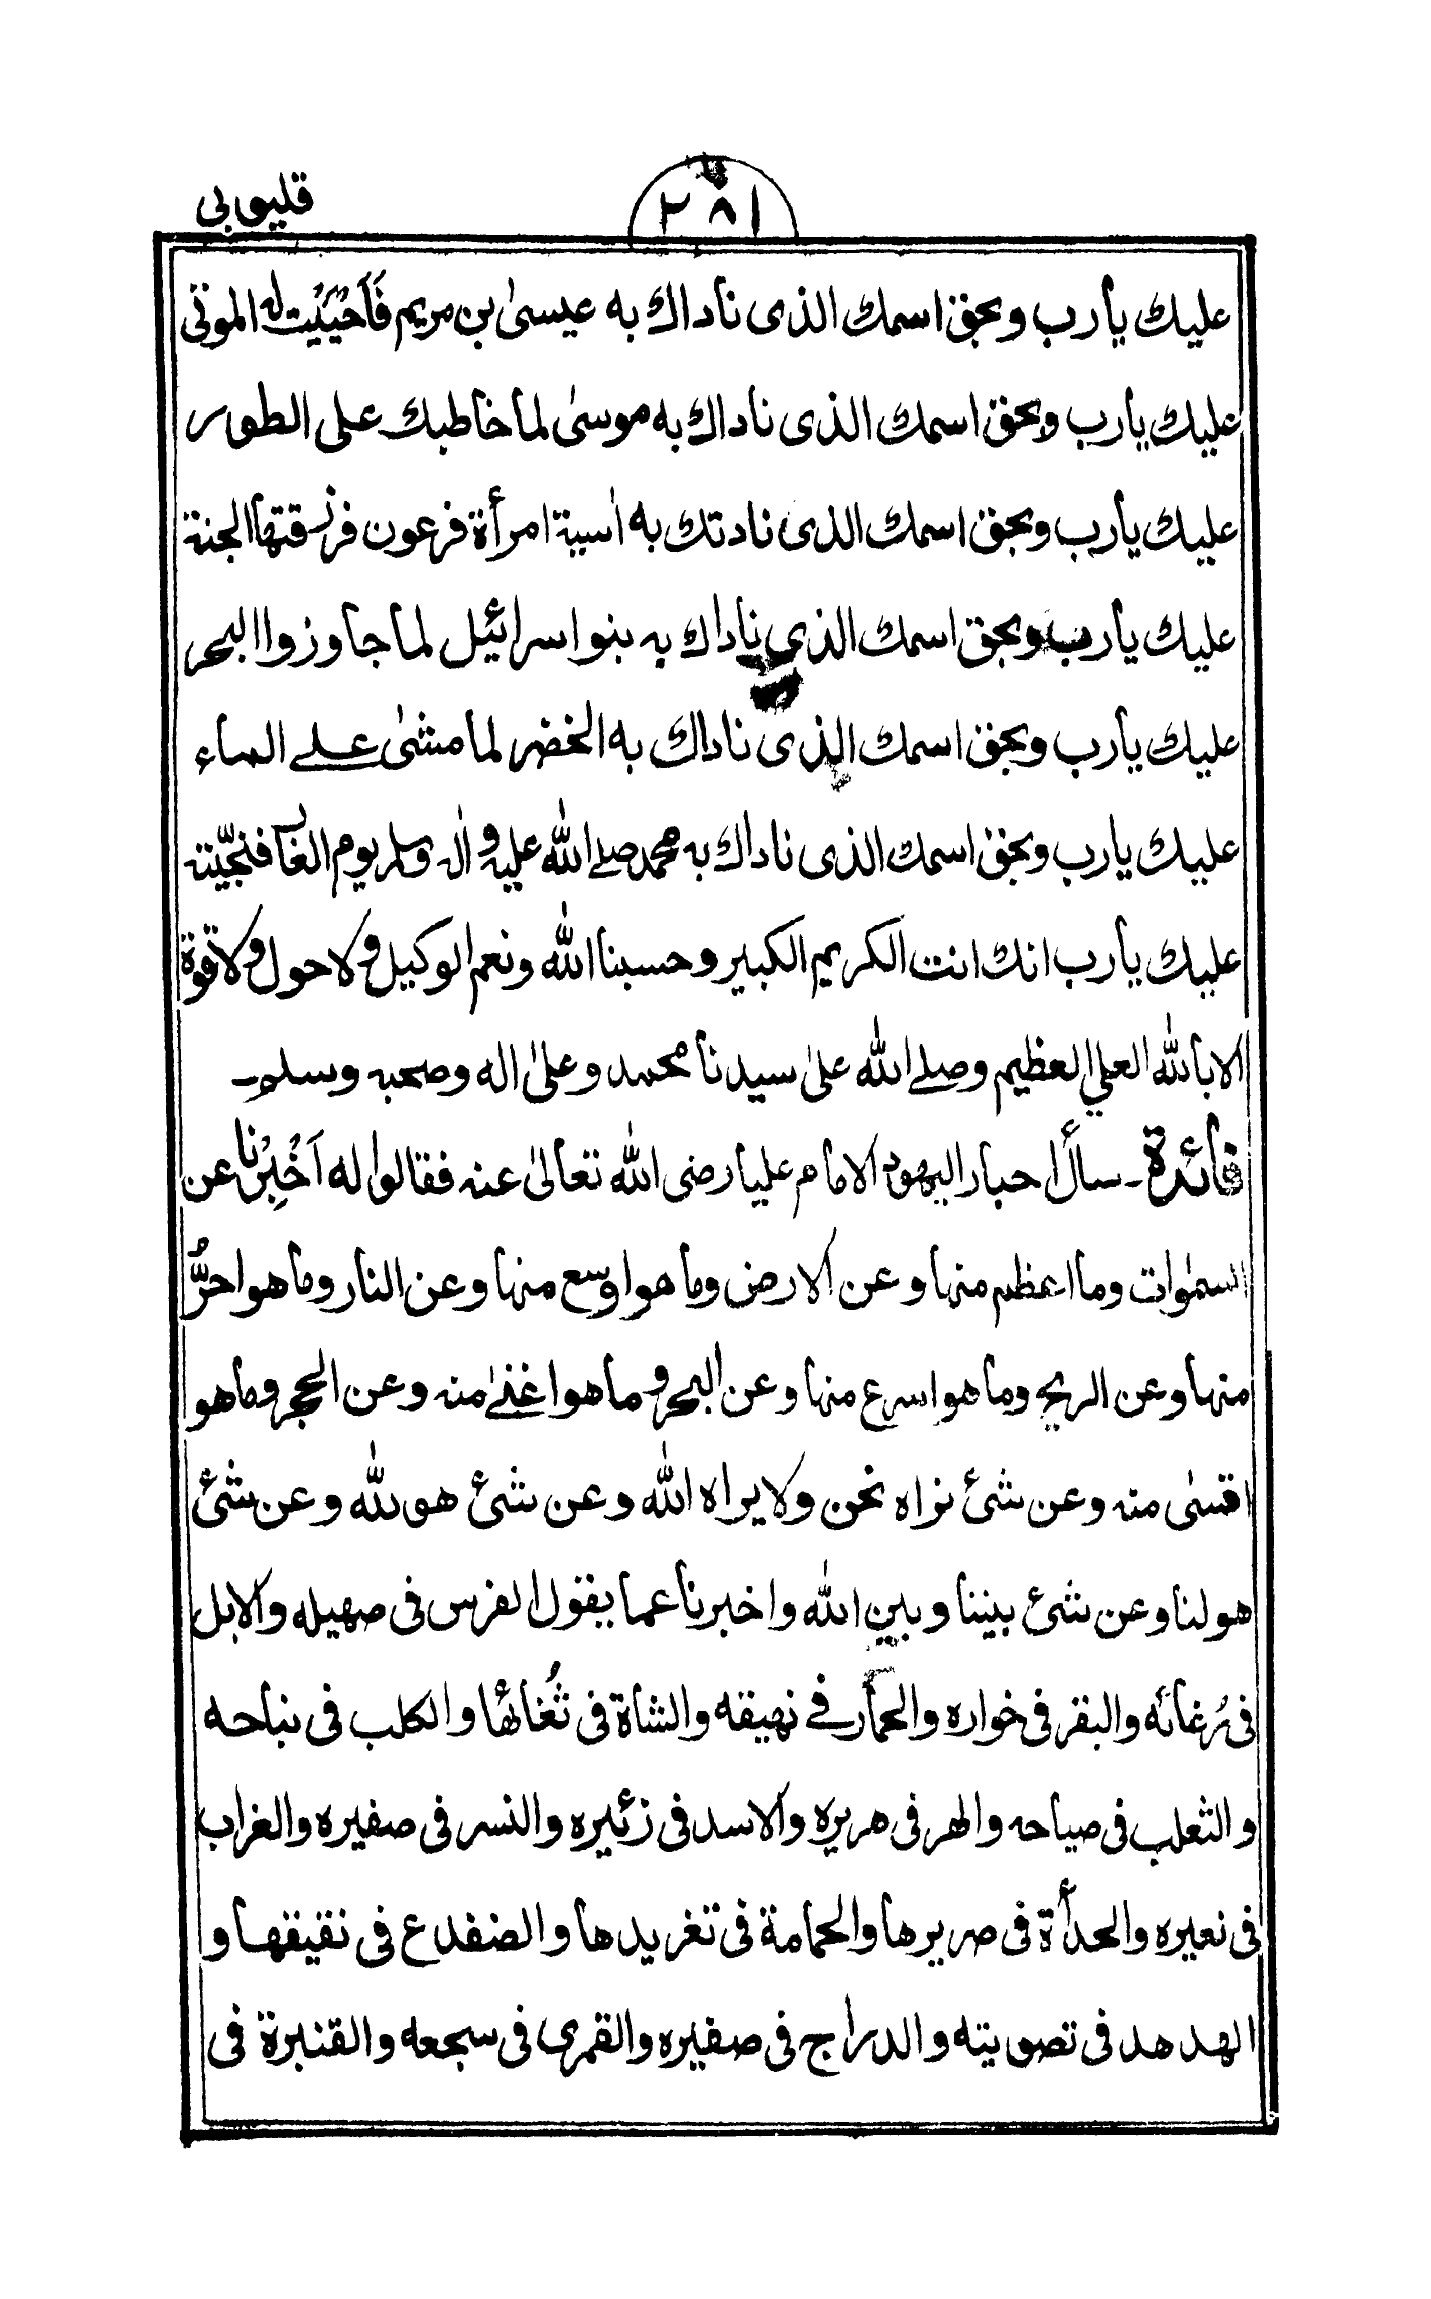 قليوبى
٢٨١
عليك يارب وبحق اسمك الذى ناداك به عيسىٰ بن مريم فَاَحْيَيْتَ له الموتى
عليك يارب وبحق اسمك الذى ناداك به موسىٰ لما خاطبك على الطور
عليك يارب وبحق اسمك الذى نادتك به اٰسية امرأة فرعون فرزقتها الجنة
عليك يارب وبحق اسمك الذى ناداك به بنو اسرائيل لما جاوزوا البحر
عليك يارب وبحق اسمك الذى ناداك به الخضر لما مشىٰ على الماء
عليك يارب وبحق اسمك الذى ناداك به محمد صلى الله عليه و اٰله وسلم يوم الغار فنجّيته
عليك يارب انك انت الكريم الكبير وحسبنا الله ونعم الوكيل ولا حول ولا قوة
الا بالله العلي العظيم وصلى الله علىٰ سيدنا محمد وعلىٰ اٰله وصحبه وسلم۔
فائدة۔ سأل احبار اليهود الامام عليا رضى الله تعالىٰ عنه فقالوا له اَخْبِرْنا عن
السمٰوات وما اعظم منها وعن الارض وما هو اوسع منها وعن النار وما هو احرُّ
منها وعن الريح وما هو اسرع منها وعن البحر وما هو اغنىٰ منه وعن الحجر وما هو
اقسٰى منه وعن شئ نراه نحن ولا يراه الله وعن شئ هو لله وعن شئ
هو لنا وعن شئ بيننا وبين الله واخبرنا عما يقول الفرس فى صهيله والابل
فى رُغائه والبقر فى خواره والحمار فى نهيقه والشاة فى ثُغائها والكلب فى نباحه
والثعلب فى صياحه والهر فى هريره والاسد فى زئيره والنسر فى صفيره والغراب
فى نعيره والحدأة فى صريرها والحمامة فى تغريدها والضفدع فى نقيقها و
الهدهد فى تصويته والدراج فى صفيره والقمرى فى سجعه والقنبرة فى